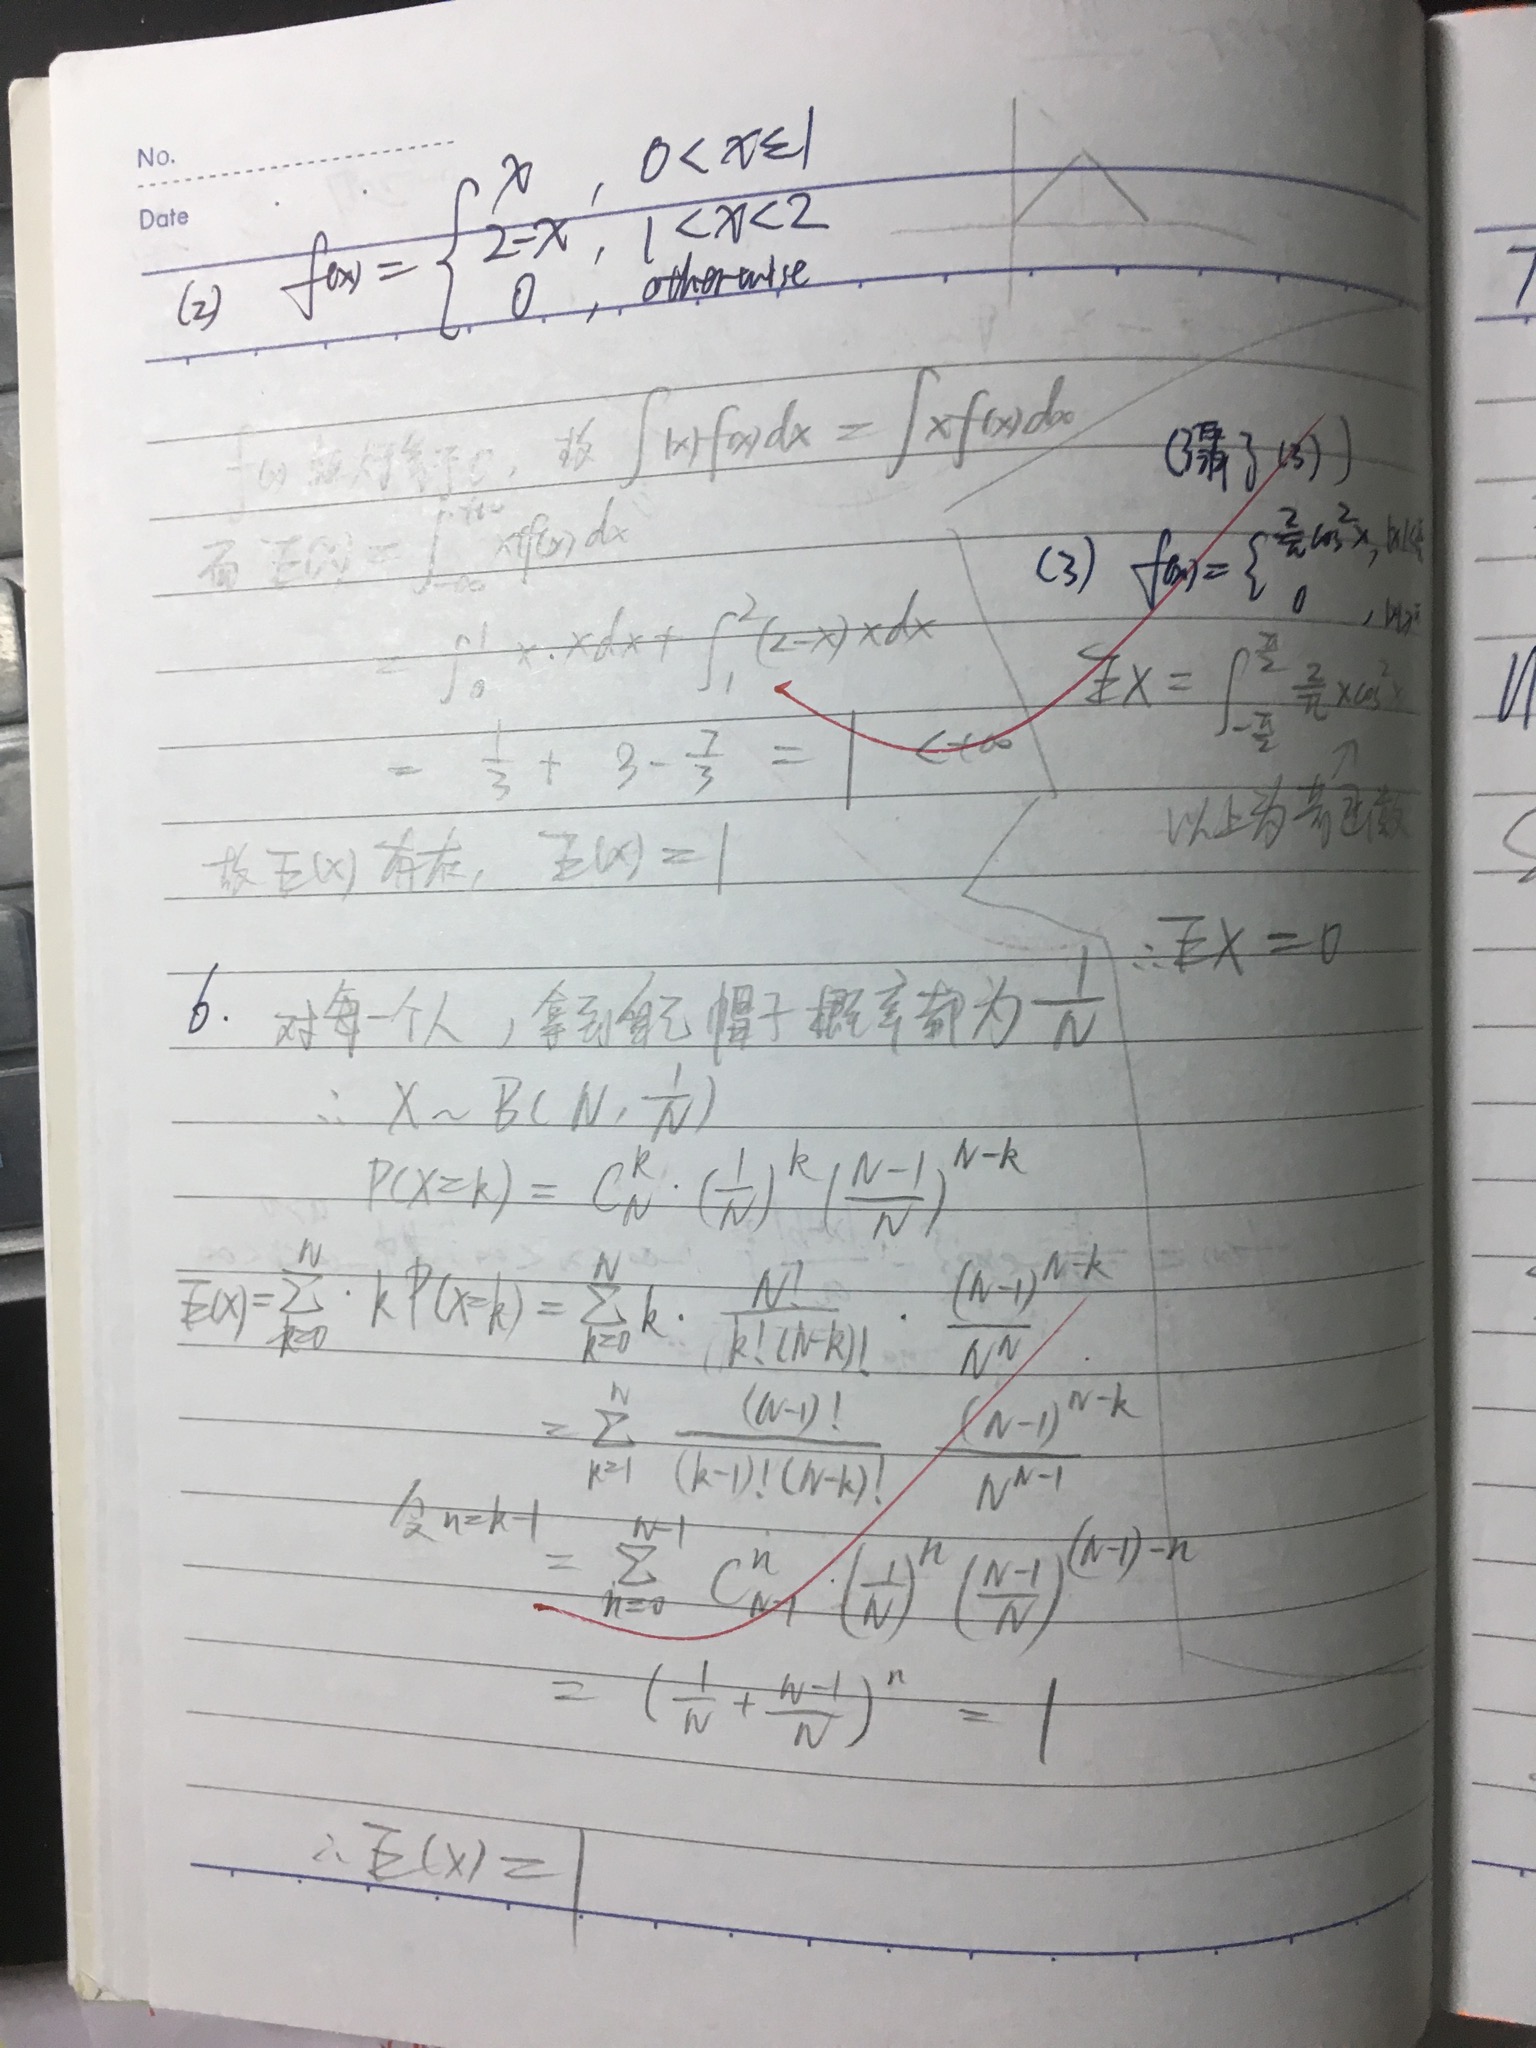 No.
Date
(2) f(x) = { x , 0 < x ≤ 1
2-x , 1 < x < 2
0 , otherwise
f(x) 故 ∫|x|f(x)dx = ∫xf(x)dx
而 E(X) = ∫_{-∞}^{+∞} xf(x)dx
= ∫_0^1 x·xdx + ∫_1^2 (2-x)xdx
= 1/3 + 3 - 7/3 = 1 < +∞
故 E(X) 存在, E(X) = 1
(3))
(3) f(x) = { 2/π cos²x,
0 ,
EX = ∫_{-π/2}^{π/2} 2/π xcos²x
以上为奇函数
∴ EX = 0
6. 对每一个人, 拿到自己帽子概率都为 1/N
∴ X ~ B(N, 1/N)
P(X=k) = C_N^k · (1/N)^k ((N-1)/N)^{N-k}
E(X) = Σ_{k=0}^{N} · k P(X=k) = Σ_{k=0}^{N} k · N!/(k!(N-k)!) · (N-1)^{N-k}/N^N
= Σ_{k=1}^{N} (N-1)!/((k-1)!(N-k)!) (N-1)^{N-k}/N^{N-1}
令n=k-1
= Σ_{n=0}^{N-1} C_{N-1}^n · (1/N)^n ((N-1)/N)^{(N-1)-n}
= (1/N + (N-1)/N)^n = 1
∴ E(X) = 1